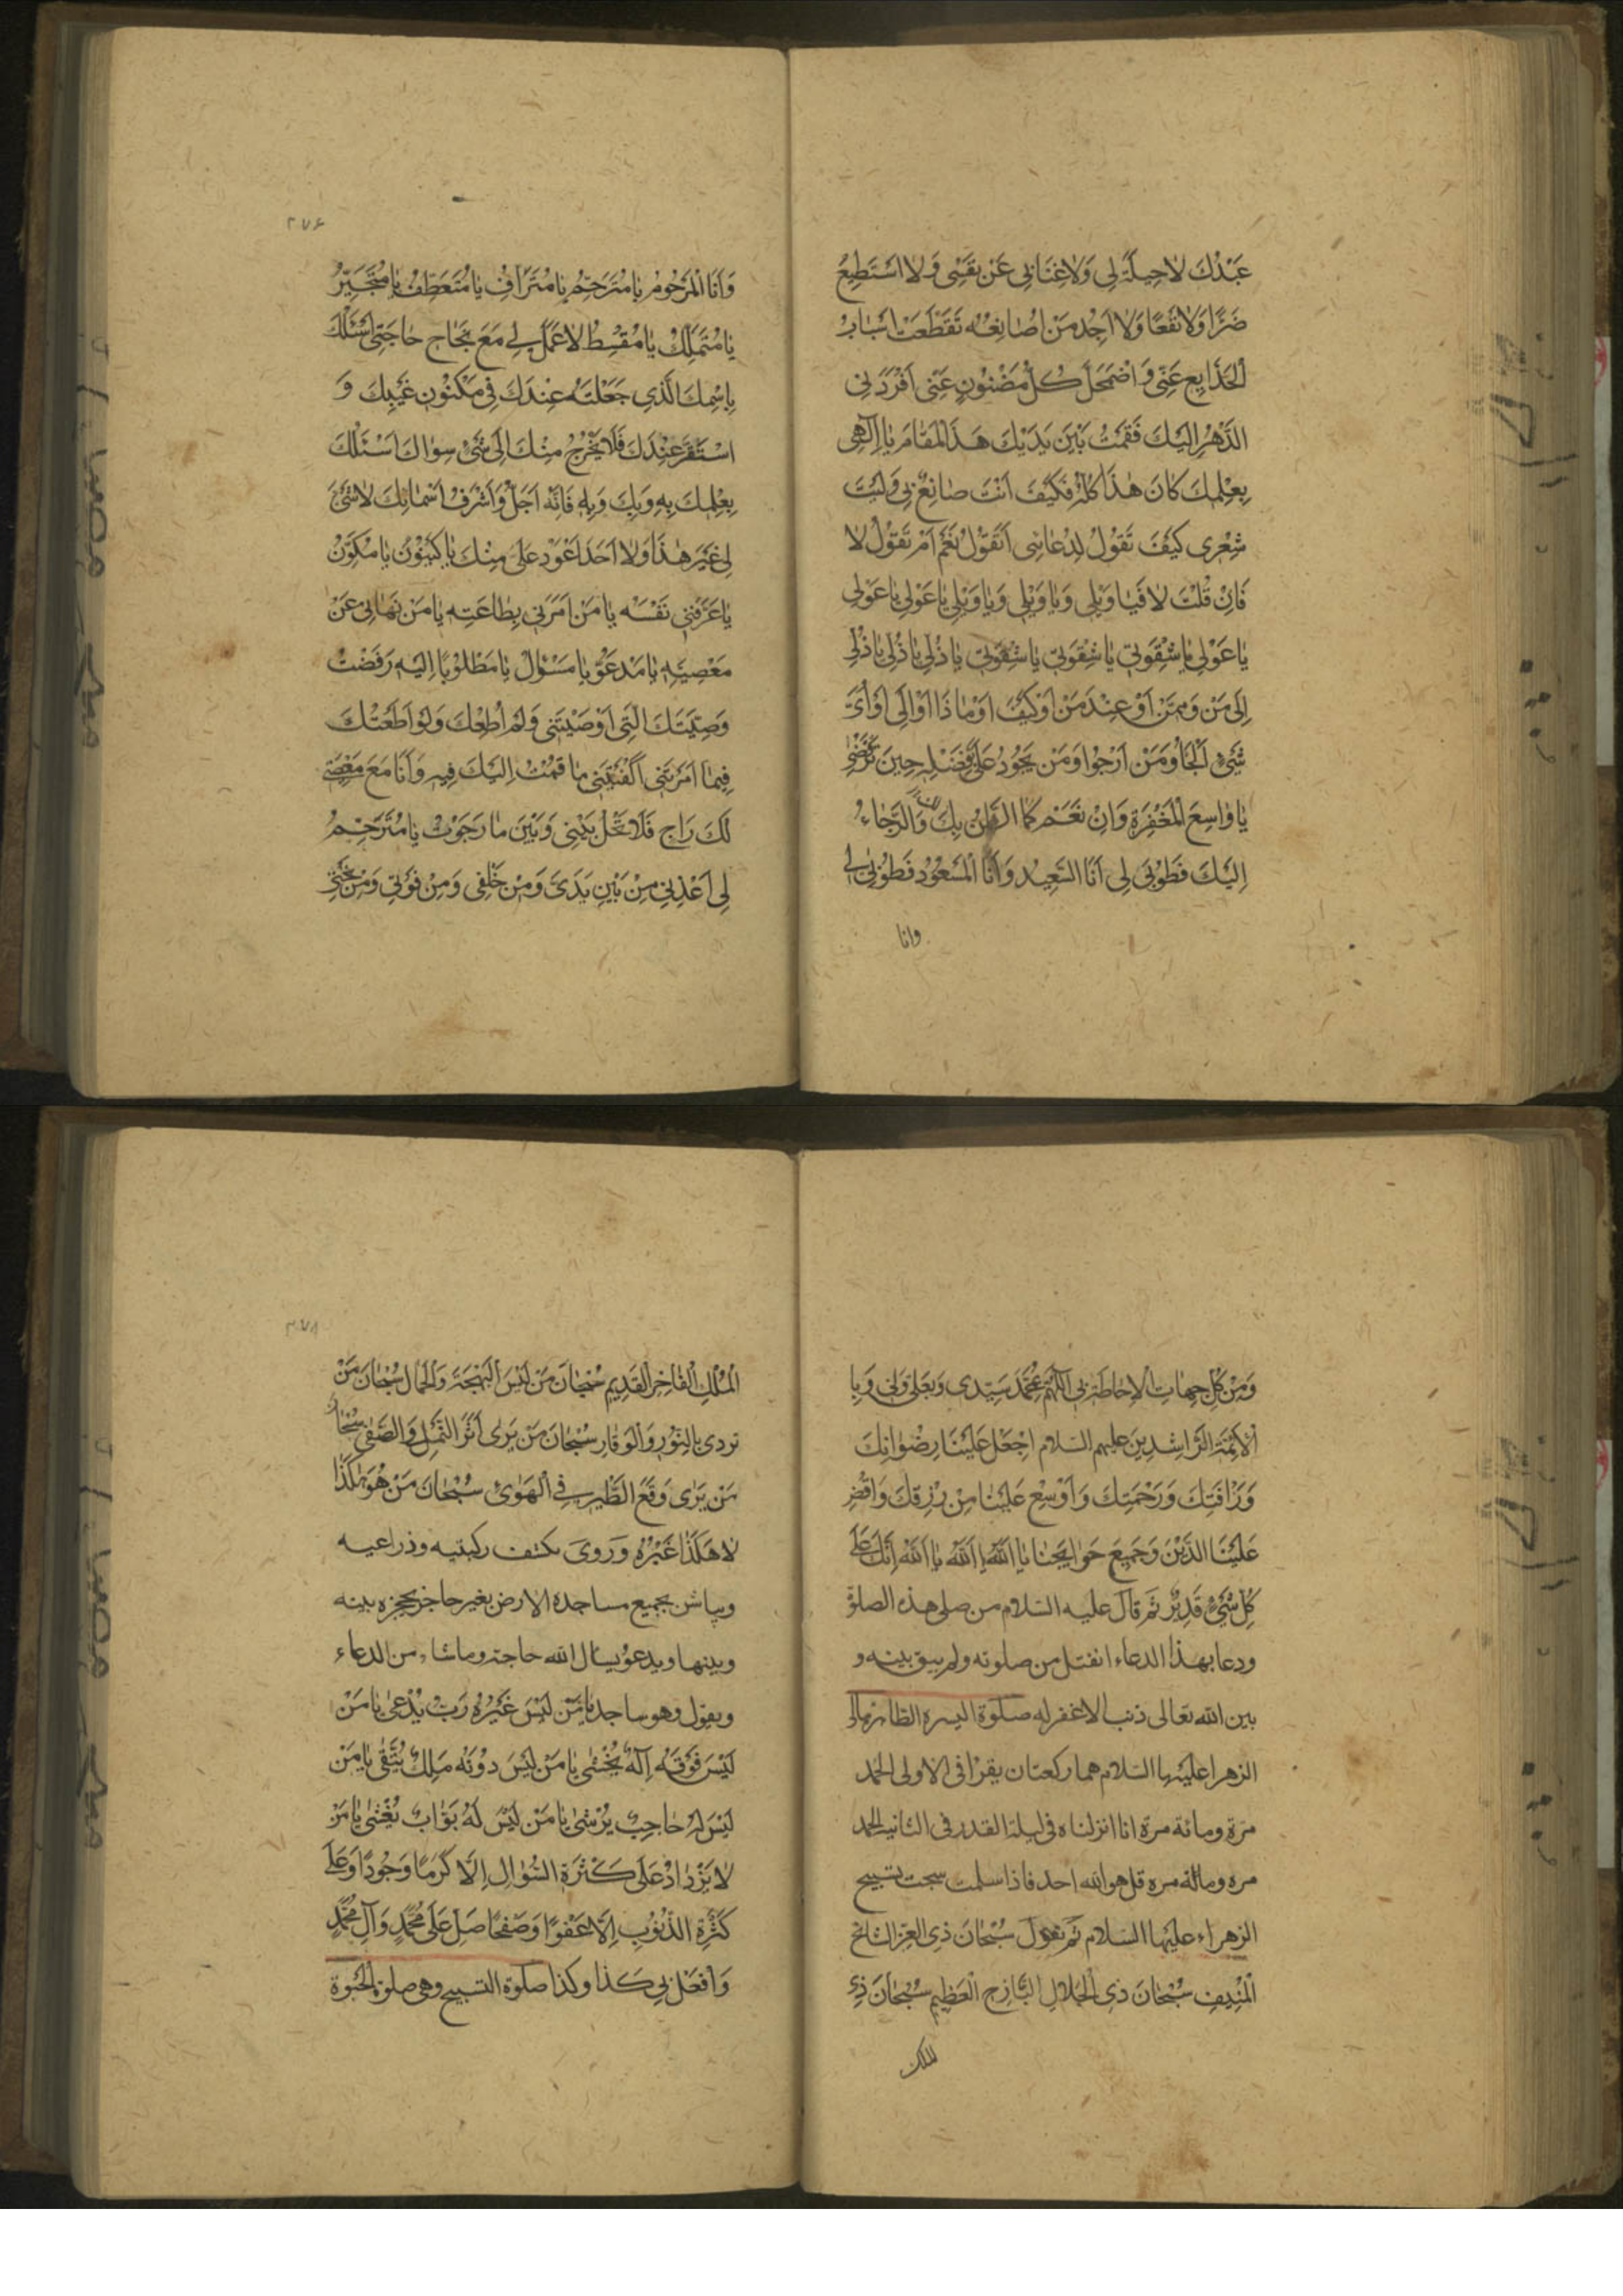 عَبْدُكَ لاحِيلَةَ لِي وَلاغِنَابِي عَنْ نَفْسِي وَلا اَسْتَطِيعُ
ضَرًّا وَلا نَفْعًا وَلا اَجِدُ مَنْ اُصَانِعُهُ تَقَطَّعَتْ اَسْبَابُ
الْخَدَايِعِ عَنِّي وَاضْمَحَلَّ كُلُّ مَظْنُونٍ عَنِّي اَفْرَدَنِي
الدَّهْرُ اِلَيْكَ فَقُمْتُ بَيْنَ يَدَيْكَ هَذَا الْمَقَامَ يَا اِلَهِي
بِعِلْمِكَ كَانَ هٰذَا كُلُّهُ فَكَيْفَ اَنْتَ صَانِعٌ بِي وَلَيْتَ
شِعْرِي كَيْفَ تَقُولُ لِدُعَائِي اَتَقُولُ نَعَمْ اَمْ تَقُولُ لا
فَاِنْ قُلْتَ لا فَيَا وَيْلِي وَيَا وَيْلِي وَيَا وَيْلِي يَا عَوْلِي يَا عَوْلِي
يَا عَوْلِي يَا شِقْوَتِي يَا شِقْوَتِي يَا شِقْوَتِي يَا ذُلِّي يَا ذُلِّي يَا ذُلِّي
اِلَى مَنْ وَمِمَّنْ اَوْ عِنْدَ مَنْ اَوْ كَيْفَ اَوْ مَاذَا اَوْ اِلَى اَوْ اَيِّ
شَيْءٍ اَلْجَأُ وَمَنْ اَرْجُوا وَمَنْ يَجُودُ عَلَيَّ بِفَضْلِهِ حِينَ تَرْفُضُنِي
يَا وَاسِعَ الْمَغْفِرَةِ وَاِنْ نَعَمْ كَمَا الظَّنُّ بِكَ وَالرَّجَاءُ
اِلَيْكَ فَطُوبَى لِي اَنَا السَّعِيدُ وَاَنَا الْمَسْعُودُ فَطُوبَى لِي
وانا
٢٧٦
وَاَنَا الْمَرْحُومُ يَا مُتَرَحِّمُ يَا مُتَرَاَفُ يَا مُتَعَطِّفُ يَا مُتَجَبِّرُ
يَا مُتَمَلِّكُ يَا مُقْسِطُ لا عَمَلَ لِي مَعَ نَجَاحِ حَاجَتِي اَسْئَلُكَ
بِاسْمِكَ الَّذِي جَعَلْتَهُ عِنْدَكَ فِي مَكْنُونِ غَيْبِكَ وَ
اسْتَقَرَّ عِنْدَكَ فَلا يَخْرُجُ مِنْكَ اِلَى شَيْءٍ سِوَاكَ اَسْئَلُكَ
بِعِلْمِكَ بِهِ وَبِكَ وَبِهِ فَاِنَّهُ اَجَلُّ وَاَشْرَفُ اَسْمَائِكَ لا شَيْءَ
لِي غَيْرَ هٰذَا وَلا اَحَدَ اَعْوَدُ عَلَيَّ مِنْكَ يَا كَيْنُونُ يَا مُكَوِّنُ
يَا عَرَّفَنِي نَفْسَهُ يَا مَنْ اَمَرَنِي بِطَاعَتِهِ يَا مَنْ نَهَانِي عَنْ
مَعْصِيَتِهِ يَا مَدْعُوُّ يَا مَسْؤُلُ يَا مَطْلُوبًا اِلَيْهِ رَفَضْتُ
وَصِيَّتَكَ الَّتِي اَوْصَيْتَنِي وَلَمْ اُطِعْكَ وَلَوْ اَطَعْتُكَ
فِيمَا اَمَرْتَنِي لَكَفَيْتَنِي مَا قُمْتُ اِلَيْكَ فِيهِ وَاَنَا مَعَ مَعْصِيَتِي
لَكَ رَاجٍ فَلا تَحُلْ بَيْنِي وَبَيْنَ مَا رَجَوْتُ يَا مُتَرَحِّمُ
لِي اَعِذْنِي مِنْ بَيْنِ يَدَيَّ وَمِنْ خَلْفِي وَمِنْ فَوْقِي وَمِنْ تَحْتِي
وَمِنْ كُلِّ جِهَاتِ الاِحَاطَةِ بِي اَللّٰهُمَّ بِمُحَمَّدٍ سَيِّدِي وَبِعَلِيٍّ وَلِيِّ وَبِا
لْاَئِمَّةِ الرَّاشِدِينَ عليهم السلام اِجْعَلْ عَلَيْنَا رِضْوَانَكَ
وَرَأْفَتَكَ وَرَحْمَتَكَ وَاَوْسِعْ عَلَيْنَا مِنْ رِزْقِكَ وَاقْضِ
عَلَيْنَا الدَّيْنَ وَجَمِيعَ حَوَايِجِنَا يَا اَللّٰهُ يَا اَللّٰهُ يَا اَللّٰهُ اِنَّكَ عَلَى
كُلِّ شَيْءٍ قَدِيرٌ ثم قال عليه السلام من صلى هذه الصلوة
ودعا بهذا الدعاء انفتل من صلوته ولم يبق بينه و
بين الله تعالى ذنب الا غفر له صلوة السيدة الطاهرة
الزهرا عليها السلام هما ركعتان يقرا فى الاولى الحمد
مرة ومائة مرة انا انزلناه فى ليلة القدر وفى الثانية الحمد
مره ومائة مره قل هو الله احد فاذا سلمت سبحت تسبيح
الزهراء عليها السلام ثم تقول سُبْحَانَ ذِي الْعِزِّ الشَّامِخِ
الْمُنِيفِ سُبْحَانَ ذِي الْجَلالِ الْبَاذِخِ الْعَظِيمِ سُبْحَانَ ذِي
الملك
٢٧٨
الْمُلْكِ الْفَاخِرِ الْقَدِيمِ سُبْحَانَ مَنْ لَبِسَ الْبَهْجَةَ وَالْجَمَالَ سُبْحَانَ مَنْ
تردى بِالنُّورِ وَالْوَقَارِ سُبْحَانَ مَنْ يَرَى اَثَرَ النَّمْلِ فِي الصَّفَا سُبْحَانَ
مَنْ يَرَى وَقْعَ الطَّيْرِ فِي الْهَوَى سُبْحَانَ مَنْ هُوَ هٰكَذَا
لا هَكَذَا غَيْرُهُ وَرَوىَ يكشف ركبتيه وذراعيه
ويباشر بجميع مساجده الارض بغير حاجز يحجزه بينه
وبينها ويدعو ويسال الله حاجته وما شاء من الدعاء
ويقول وهو ساجد يَا مَنْ لَيْسَ غَيْرُهُ رَبٌّ يُدْعىٰ يَا مَنْ
لَيْسَ فَوْقَهُ اِلٰهٌ يُخْشىٰ يَا مَنْ لَيْسَ دُونَهُ مَلِكٌ يُتَّقىٰ يَا مَنْ
لَيْسَ لَهُ حَاجِبٌ يُرْشىٰ يَا مَنْ لَيْسَ لَهُ بَوَّابٌ يُغْشىٰ يَا مَنْ
لا يَزْدَادُ عَلَى كَثْرَةِ السُّؤَالِ اِلَّا كَرَمًا وَجُودًا وَعَلَى
كَثْرَةِ الذُّنُوبِ اِلَّا عَفْوًا وَصَفْحًا صَلِّ عَلَى مُحَمَّدٍ وَآلِ مُحَمَّدٍ
وَافْعَلْ بِي كَذَا وكذا صلوة التسبيح وهى صلوة الحبوة